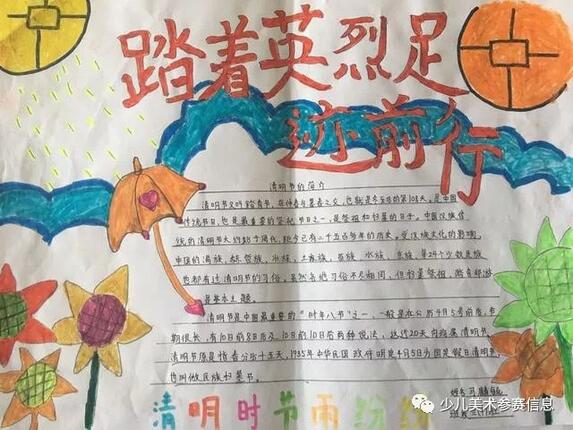 踏着英烈足
迹前行
清明节的简介
清明节又叫踏青节,在仲春与暮春之交,也就是冬至后的第108天,是中国
传统节日,也是最重要的祭祀节日之一,是祭祖和扫墓的日子。中国汉族传
统的清明节大约始于周代,距今已有二千五百多年的历史。受汉族文化的影响,
中国的满族、赫哲族、壮族、土家族、苗族、水族、京族、等24个少数民族
也都有过清明节的习俗。虽然各地习俗不尽相同,但扫墓祭祖、踏青郊游
是基本主题。
清明节是中国最重要的"时年八节"之一,一般是在公历4月5号前后,节
期很长,有10日前8日后及10日前10日后两种说法,这近20天内均属清明节。
清明节原是指春分后十五天,1935年中华民国政府明定4月5日为国定假日清明节,
也叫做民族扫墓节。
清明时节雨纷纷
姓名
班级
少儿美术参赛信息